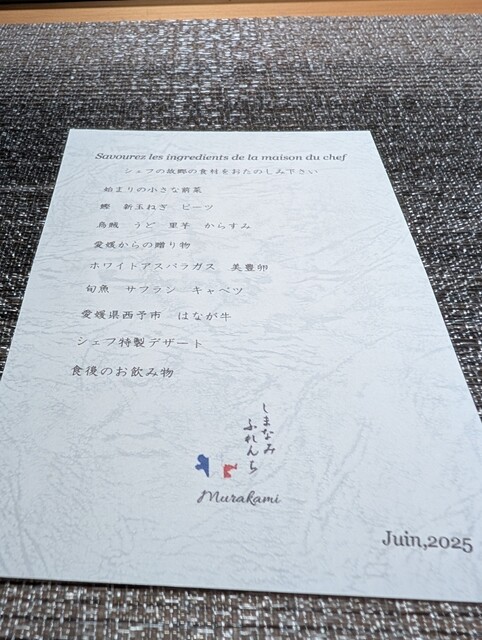 Savourez les ingredients de la maison du chef
シェフの故郷の食材をおたのしみ下さい
始まりの小さな前菜
鰹 新玉ねぎ ビーツ
烏賊 うど 里芋 からすみ
愛媛からの贈り物
ホワイトアスパラガス 美豊卵
旬魚 サフラン キャベツ
愛媛県西予市 はなが牛
シェフ特製デザート
食後のお飲み物
しまなみ
ふれんち
Murakami
Juin,2025